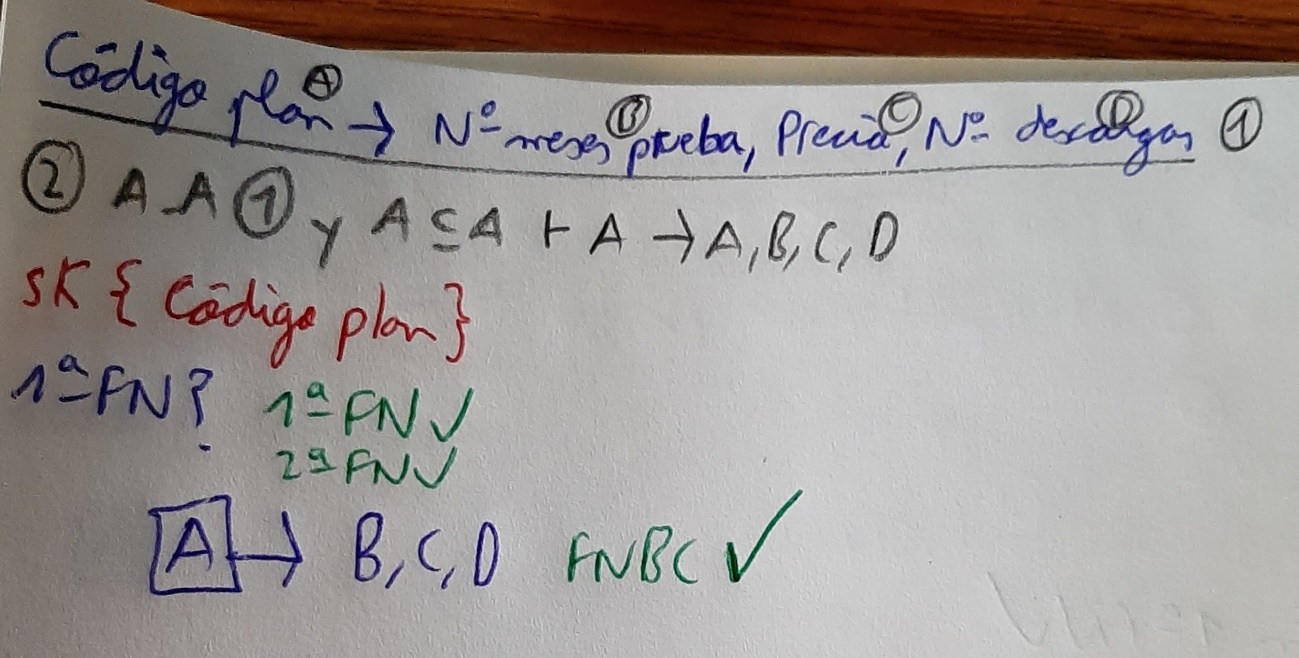 Código plan Ⓐ → Nº meses Ⓑ prueba, Precio Ⓒ, Nº descargas Ⓓ ①
② A.A ① y A ⊆ A ⊢ A → A, B, C, D
SK { Código plan }
1ª FN? 1ª FN ✓
2ª FN ✓
A → B, C, D FNBC ✓